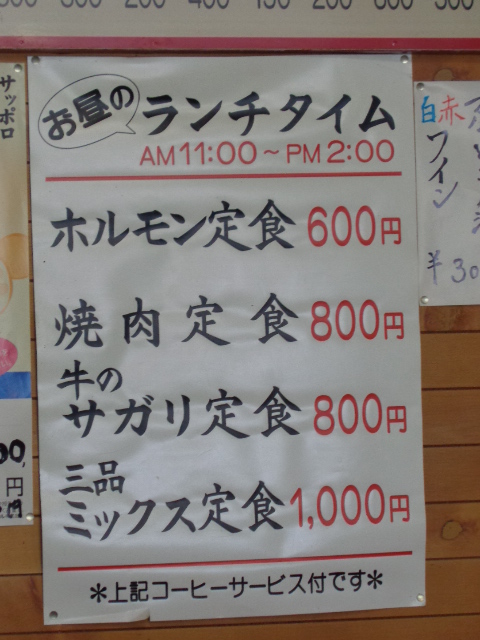 お昼の
ランチタイム
AM11:00～PM2:00
ホルモン定食 600円
焼肉定食 800円
牛の
サガリ定食 800円
三品
ミックス定食 1,000円
＊上記コーヒーサービス付です＊
サッポロ
00,
円
円
赤
白
ワイン
¥30
300
200
350
600
500